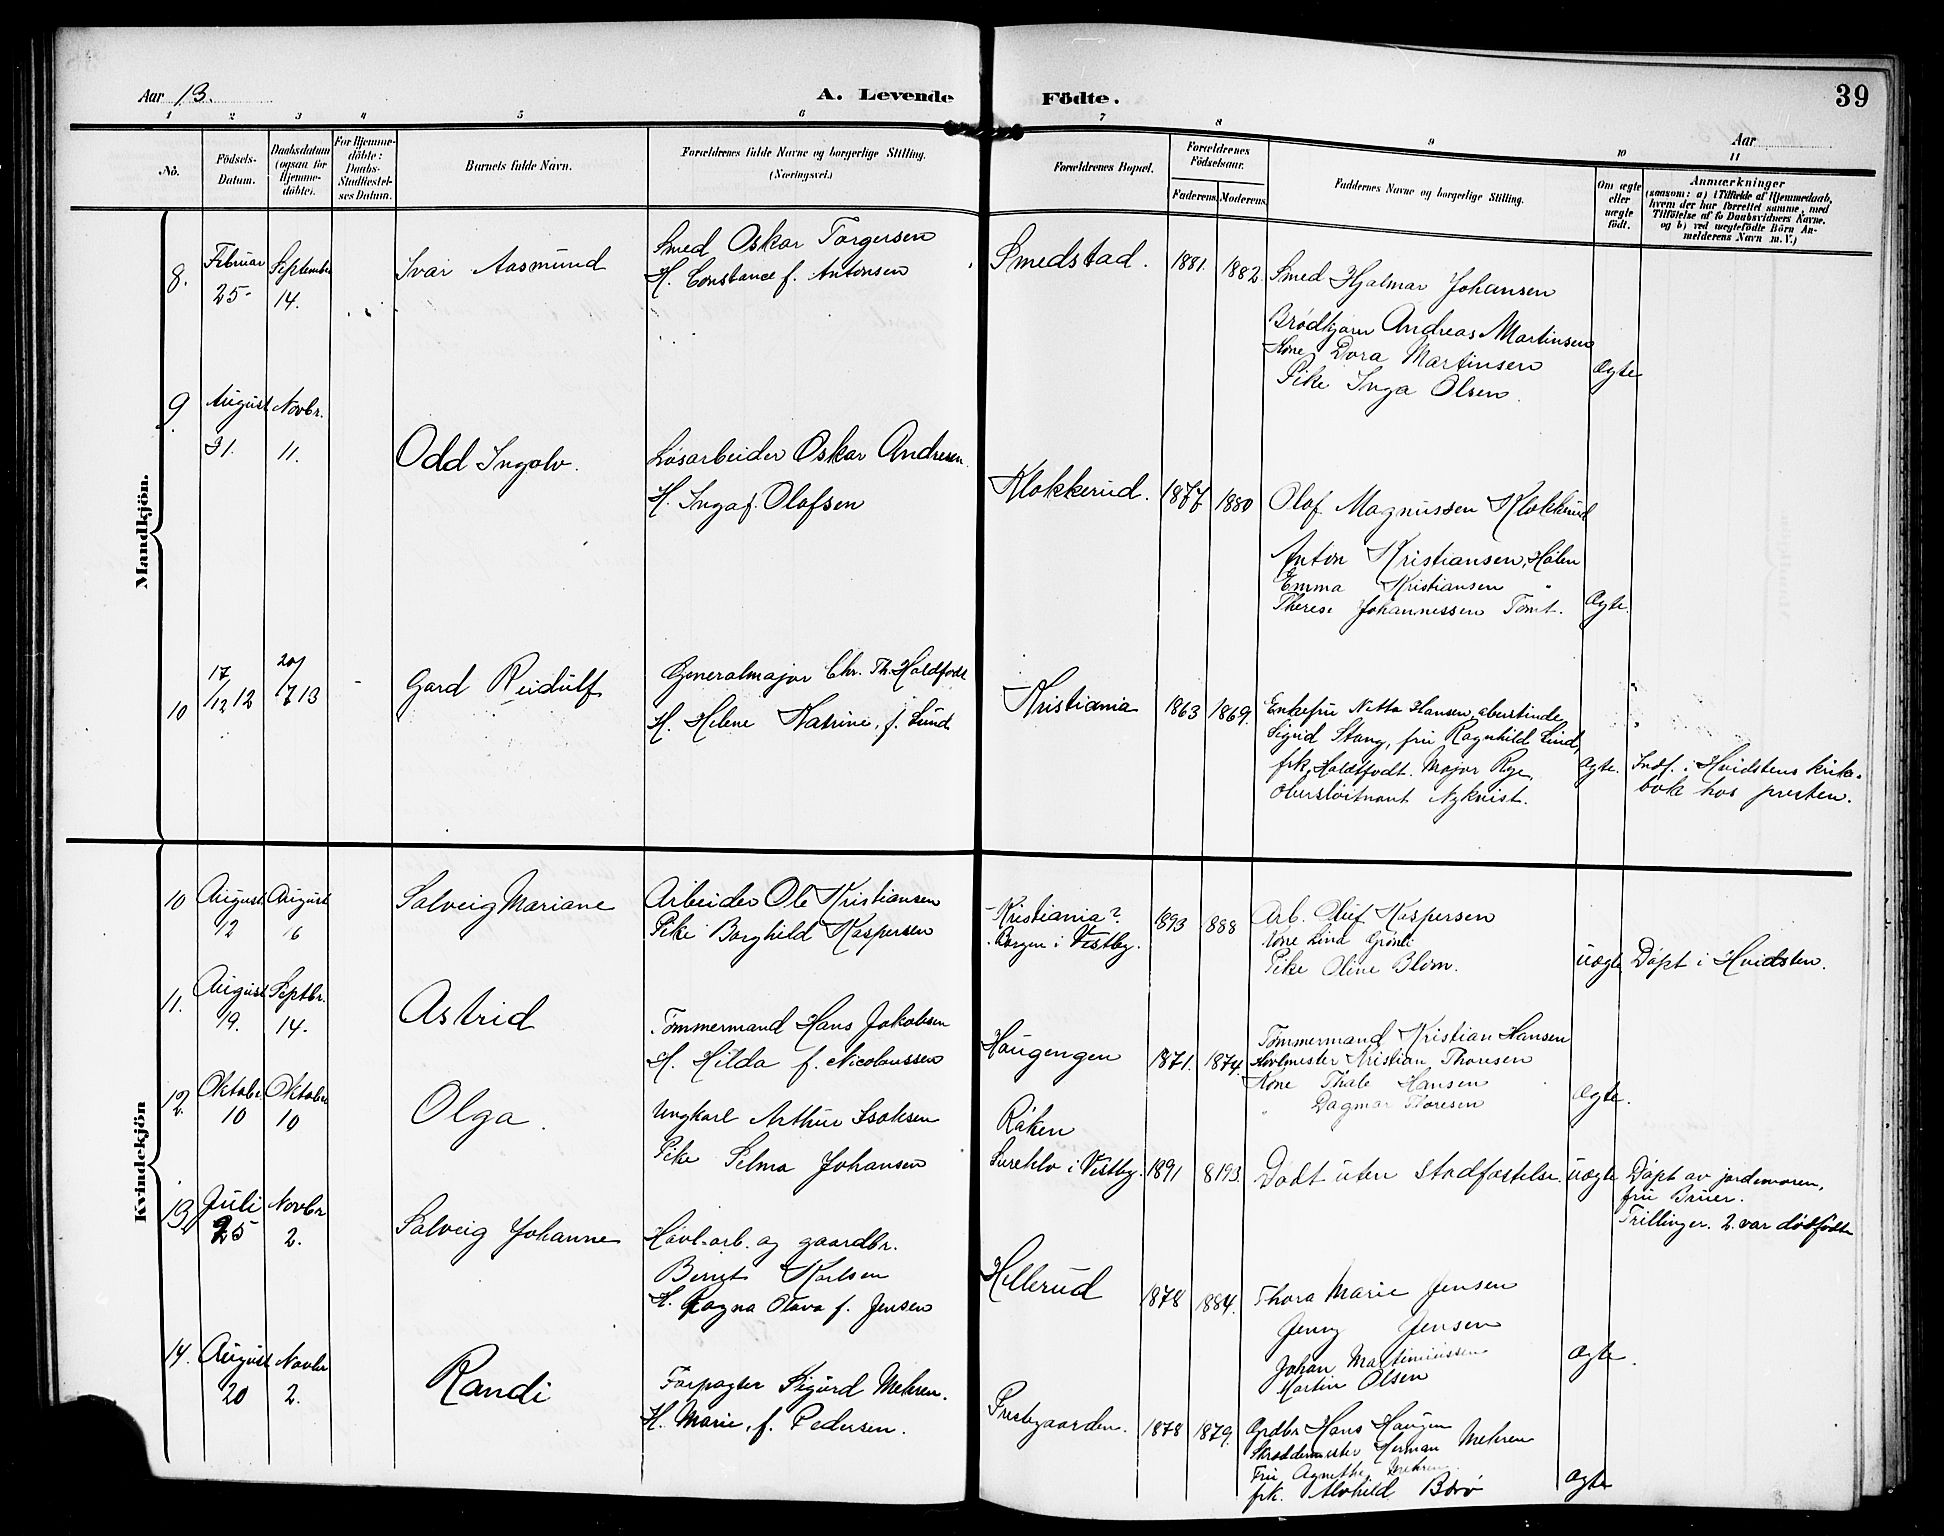 Aar 13.
A. Levende Födte.
39
Aar
1 2 3 4 5 6 7 8 9 10 11
No.
Födsels-Datum.
Daabsdatum (ogsaa for Hjemme-döbte).
For Hjemme-döbte: Daabs-Stadfæstel-ses Datum.
Barnets fulde Navn.
Forældrenes fulde Navne og borgerlige Stilling.
(Næringsvei.)
Forældrenes Bopæl.
Forældrenes Födselsaar.
Faderens. Moderens.
Faddernes Navne og borgerlige Stilling.
Om ægte eller uægte født.
Anmærkninger
(saasom: a) i Tilfælde af Hjemmedaab,
hvem der har forrettet samme, med
Tilföielse af to Daabsvidners Navne,
og b) ved uægtefödte Börn An-
melderens Navn m. V.)
Mandkjön.
8. Februar 25 September 14. Ivar Aasmund
Smed Oskar Torgersen
H. Constance f. Antonsen
Smedstad. 1881. 1882.
Smed Hjalmar Johansen
Brødkjører Andreas Martinsen
Kone Dora Martinsen
Pike Inga Olsen.
Ægte
9. August 31. Novbr. 11. Odd Ingolv.
Løsarbeider Oskar Andresen.
H. Inga f. Olofsen
Klokkerud. 1877 1880
Olof Magnussen Klokkerud
Anton Kristiansen, Hølen
Emma Kristiansen "
Therese Johannessen Tomt.
Ægte.
10 17/12 12 20/7 13 Gard Reidulf
Generalmajor Chr. Th. Holdtfodt
H. Helene Katrine, f. Lund
Kristiania 1863 1869.
Enkefru Netta Hansen, oberstinde
Sigrid Stang, fru Ragnhild Lund,
frk. Holdtfodt. Major Rye.
Oberstløitnant Nykvist.
Ægte.
Indf. i Hvidstens kirke-
bok hos presten.
Kvindekjön
10 August 12 August 16 Solveig Mariane
Arbeider Ole Kristiansen
Pike Borghild Kaspersen
Kristiania?
Borgen i Vestby.
1893 1888
Arb. Oluf Kaspersen
Kone Lina Grönli
Pike Oline Blom.
Uægte
Døpt i Hvidsten.
11. August 19. Septbr. 14. Astrid
Tømmermand Hans Jakobsen
H. Hilda f. Nicolaussen
Haugengen 1871. 1874.
Tømmermand Kristian Hansen
Høvlmester Kristian Thoresen
Kone Thale Hansen
" Dagmar Thoresen
Ægte.
12. Oktober 10 Oktober 10 Olga.
Ungkarl Arthur Isaksen
Pike Selma Johansen
Råken
i Vestby. 1891 8193.
Dødt uten stadfæstelse.
Uægte
Døpt av jordemoren,
fru Bruer.
Trillinger. 2 var dødfødte
13. Juli 25 Novbr 2. Solveig Johanne
Høvl.arb. og gaardbr.
Bernt Karlsen
H. Ragna Otava f. Jensen
Hellerud 1878 1884.
Thora Marie Jensen
Jenny Jensen
Johan Martiniussen
Martin Olsen
Ægte.
14. August 20 Novbr 2. Randi
Forpagter Sigurd Mehren.
H. Marie, f. Pedersen.
Prestegaarden. 1878 1879.
Grdbr Hans Haugen
Skreddermester Herman Mehren
Fru Agnethe Mehren.
frk. Alvhild Barø
Ægte